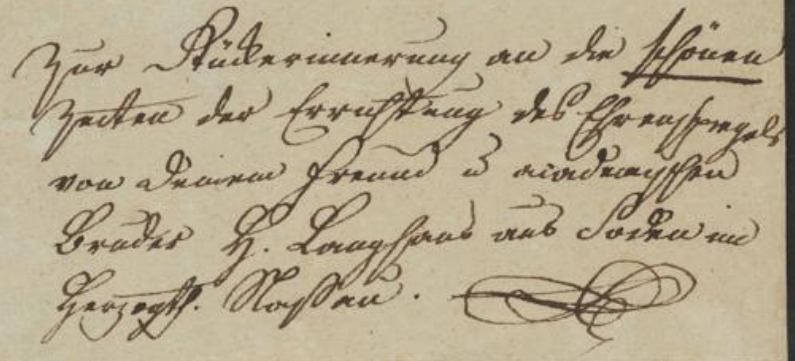 Zur Rückerinnerung an die schönen
Zeiten der Errichtung des Ehrenspiegels
von Deinem Freund u academischen
Bruder H. Langhans aus Soden im
Herzogth. Nassau.